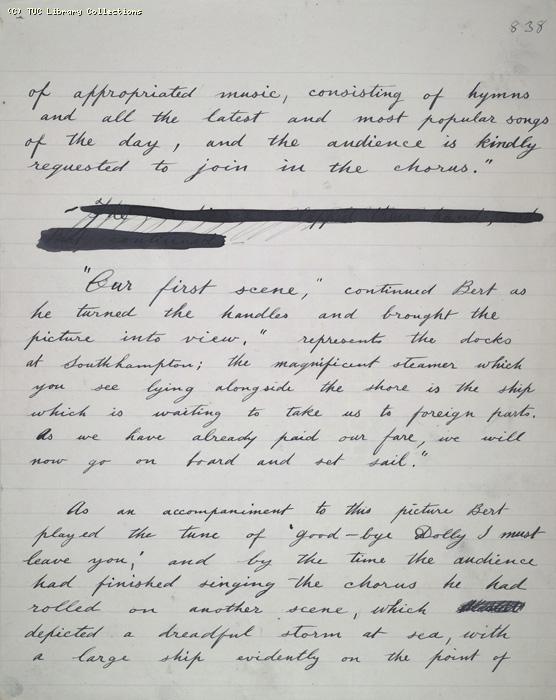 (C) TUC Library Collections
838
of appropriated music, consisting of hymns
and all the latest and most popular songs
of the day, and the audience is kindly
requested to join in the chorus."
"Our first scene," continued Bert as
he turned the handles and brought the
picture into view, "represents the docks
at Southampton; the magnificent steamer which
you see lying alongside the shore is the ship
which is waiting to take us to foreign parts.
As we have already paid our fare, we will
now go on board and set sail."
As an accompaniment to this picture Bert
played the tune of 'good-bye Dolly I must
leave you,' and by the time the audience
had finished singing the chorus he had
rolled on another scene, which
depicted a dreadful storm at sea, with
a large ship evidently on the point of